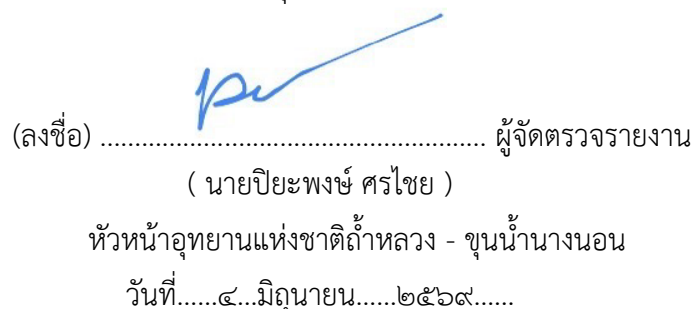 (ลงชื่อ) ........................................................ ผู้จัดตรวจรายงาน
( นายปิยะพงษ์ ศรไชย )
หัวหน้าอุทยานแห่งชาติถ้ำหลวง - ขุนน้ำนางนอน
วันที่......๔...มิถุนายน......๒๕๖๙......